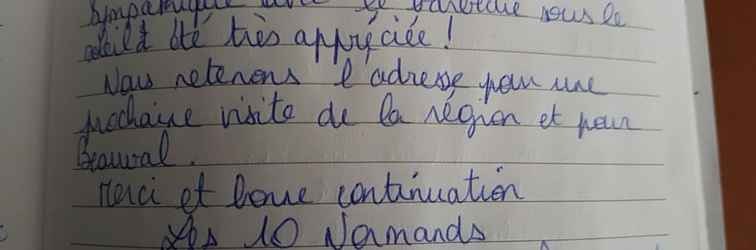 sympathique avec le barbecue sous le
soleil a été très appréciée !
Nous retenons l'adresse pour une
prochaine visite de la région et pour
Beauval.
Merci et bonne continuation
Les 10 Normands